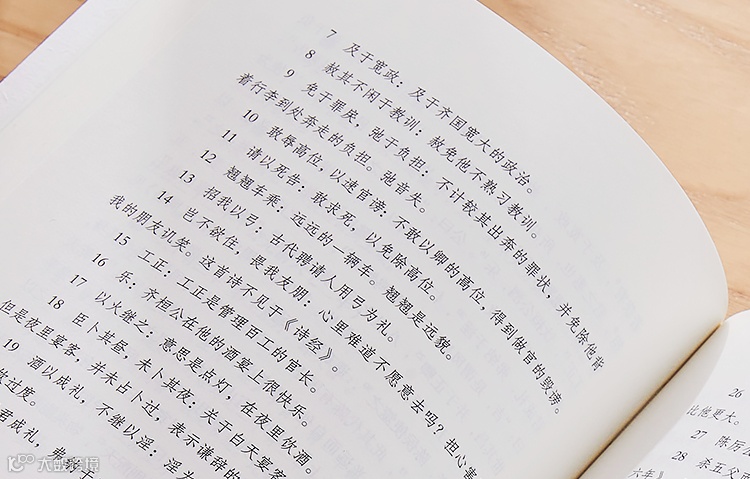 7 及于宽政：及于齐国宽大的政治。
8 赦其不闲于教训：赦免他不熟习教训。
9 免于罪戾，弛于负担：不计较其出奔的罪状，并免除他背
着行李到处奔走的负担。弛音矢。
10 敢辱高位，以速官谤：不敢以卿的高位，得到做官的毁谤。
11 请以死告：敢求死，以免除高位。
12 翘翘车乘：远远的一辆车。翘翘是远貌。
13 招我以弓：古代聘请人用弓为礼。
14 岂不欲往，畏我友朋：心里难道不愿意去吗？担心害
我的朋友讥笑。这首诗不见于《诗经》。
15 工正：工正是管理百工的官长。
16 乐：齐桓公在他的酒宴上很快乐。
17 以火继之：意思是点灯，在夜里饮酒。
18 臣卜其昼，未卜其夜：关于白天宴客
但是夜里宴客，并未占卜过，表示谦辞的
19 酒以成礼，不继以淫：淫为
过度。
君成礼，
大的跨境
26
比他更大。
27 陈厉公
28 杀五父
六年》